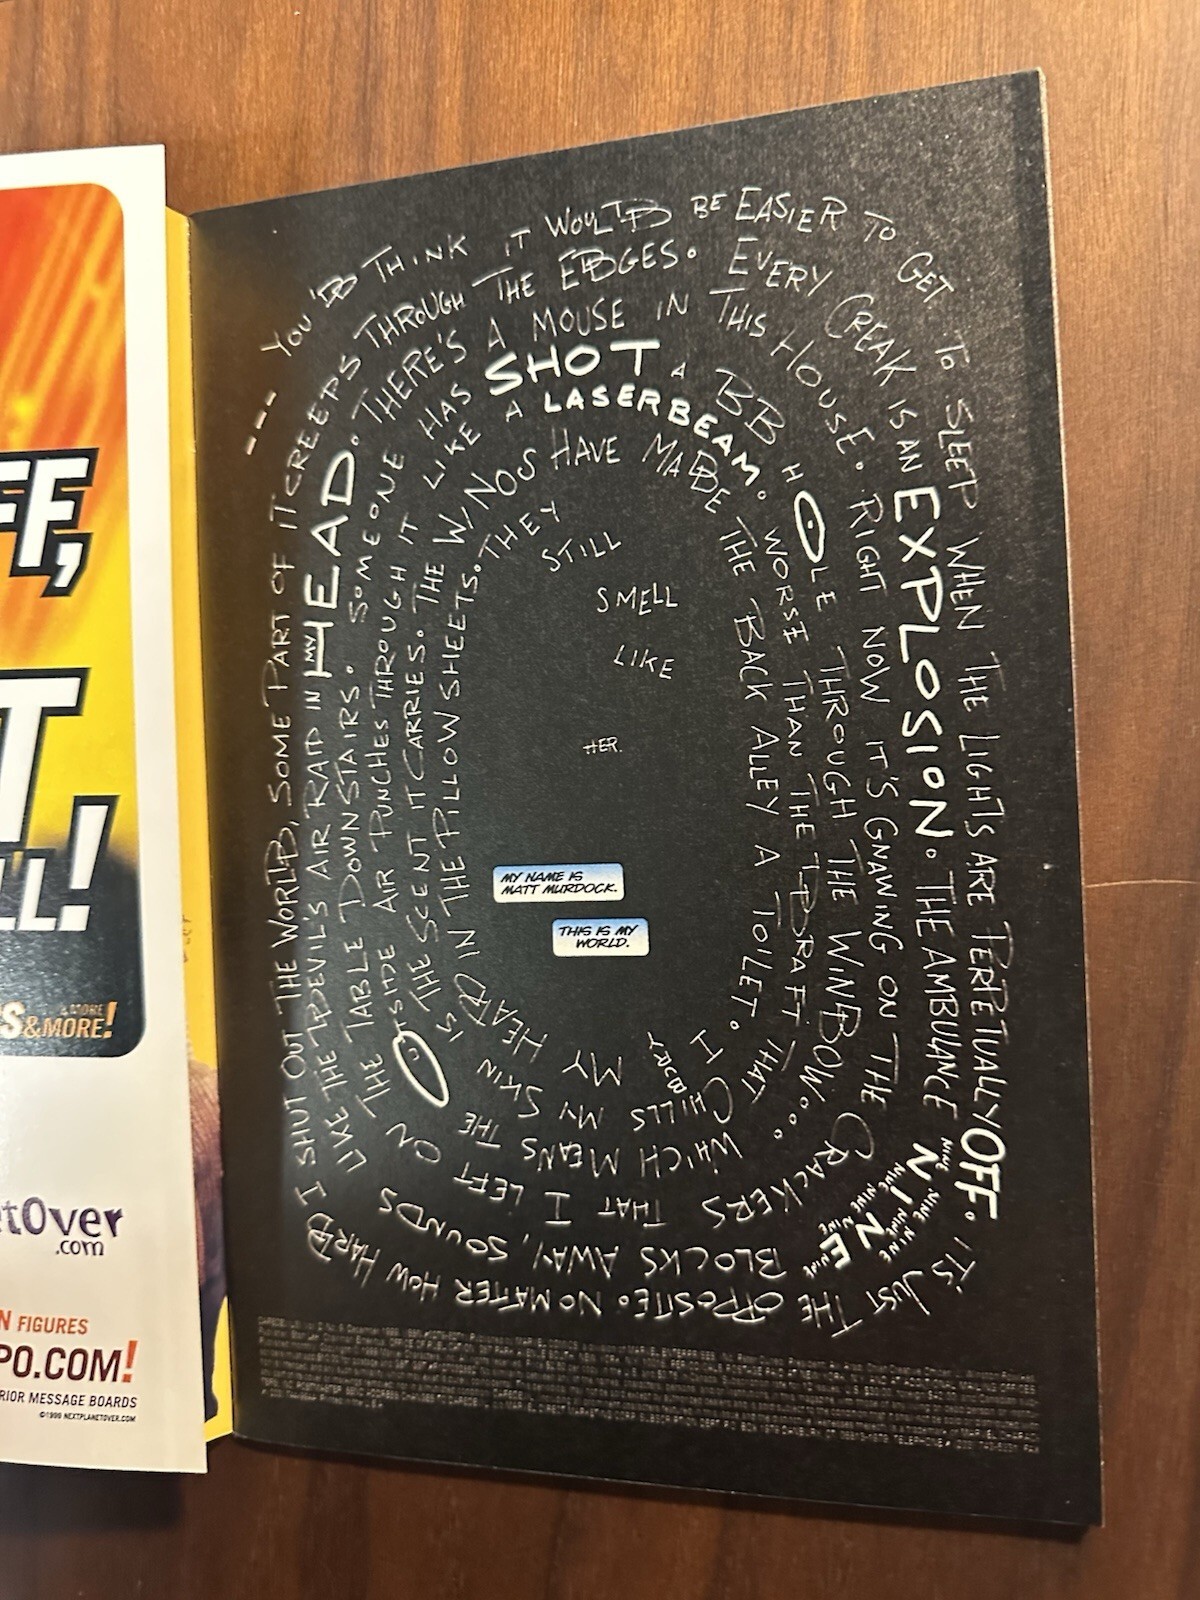 FF,
T
LL!
S & MORE!
& MORE!
etOver
.com
N FIGURES
PO.COM!
RIOR MESSAGE BOARDS
©1999 NEXTPLANETOVER.COM
--- YOU'D THINK IT WOULD BE EASIER TO GET TO SLEEP WHEN THE LIGHTS ARE PERPETUALLY OFF. IT'S JUST THE OPPOSITE. NO MATTER HOW HARD I SHUT OUT THE WORLD, SOME PART OF IT CREEPS THROUGH THE EDGES. EVERY CREAK IS AN EXPLOSION. THE AMBULANCE NINE NINE NINE NINE NINE NINE NINE BLOCKS AWAY, SOUNDS LIKE THE DEVIL'S AIR RAID IN MY HEAD. THERE'S A MOUSE IN THIS HOUSE. RIGHT NOW IT'S GNAWING ON THE CRACKERS THAT I LEFT ON THE TABLE DOWNSTAIRS. SOMEONE HAS SHOT A BB HOLE THROUGH THE WINDOW... WHICH MEANS THE OUTSIDE AIR PUNCHES THROUGH IT LIKE A LASERBEAM. WORSE THAN THE DRAFT THAT CHILLS MY SKIN IS THE SCENT IT CARRIES. THE WINOS HAVE MADE THE BACK ALLEY A TOILET. I BURY MY HEAD IN THE PILLOW SHEETS. THEY
STILL
SMELL
LIKE
HER.
MY NAME IS
MATT MURDOCK.
THIS IS MY
WORLD.